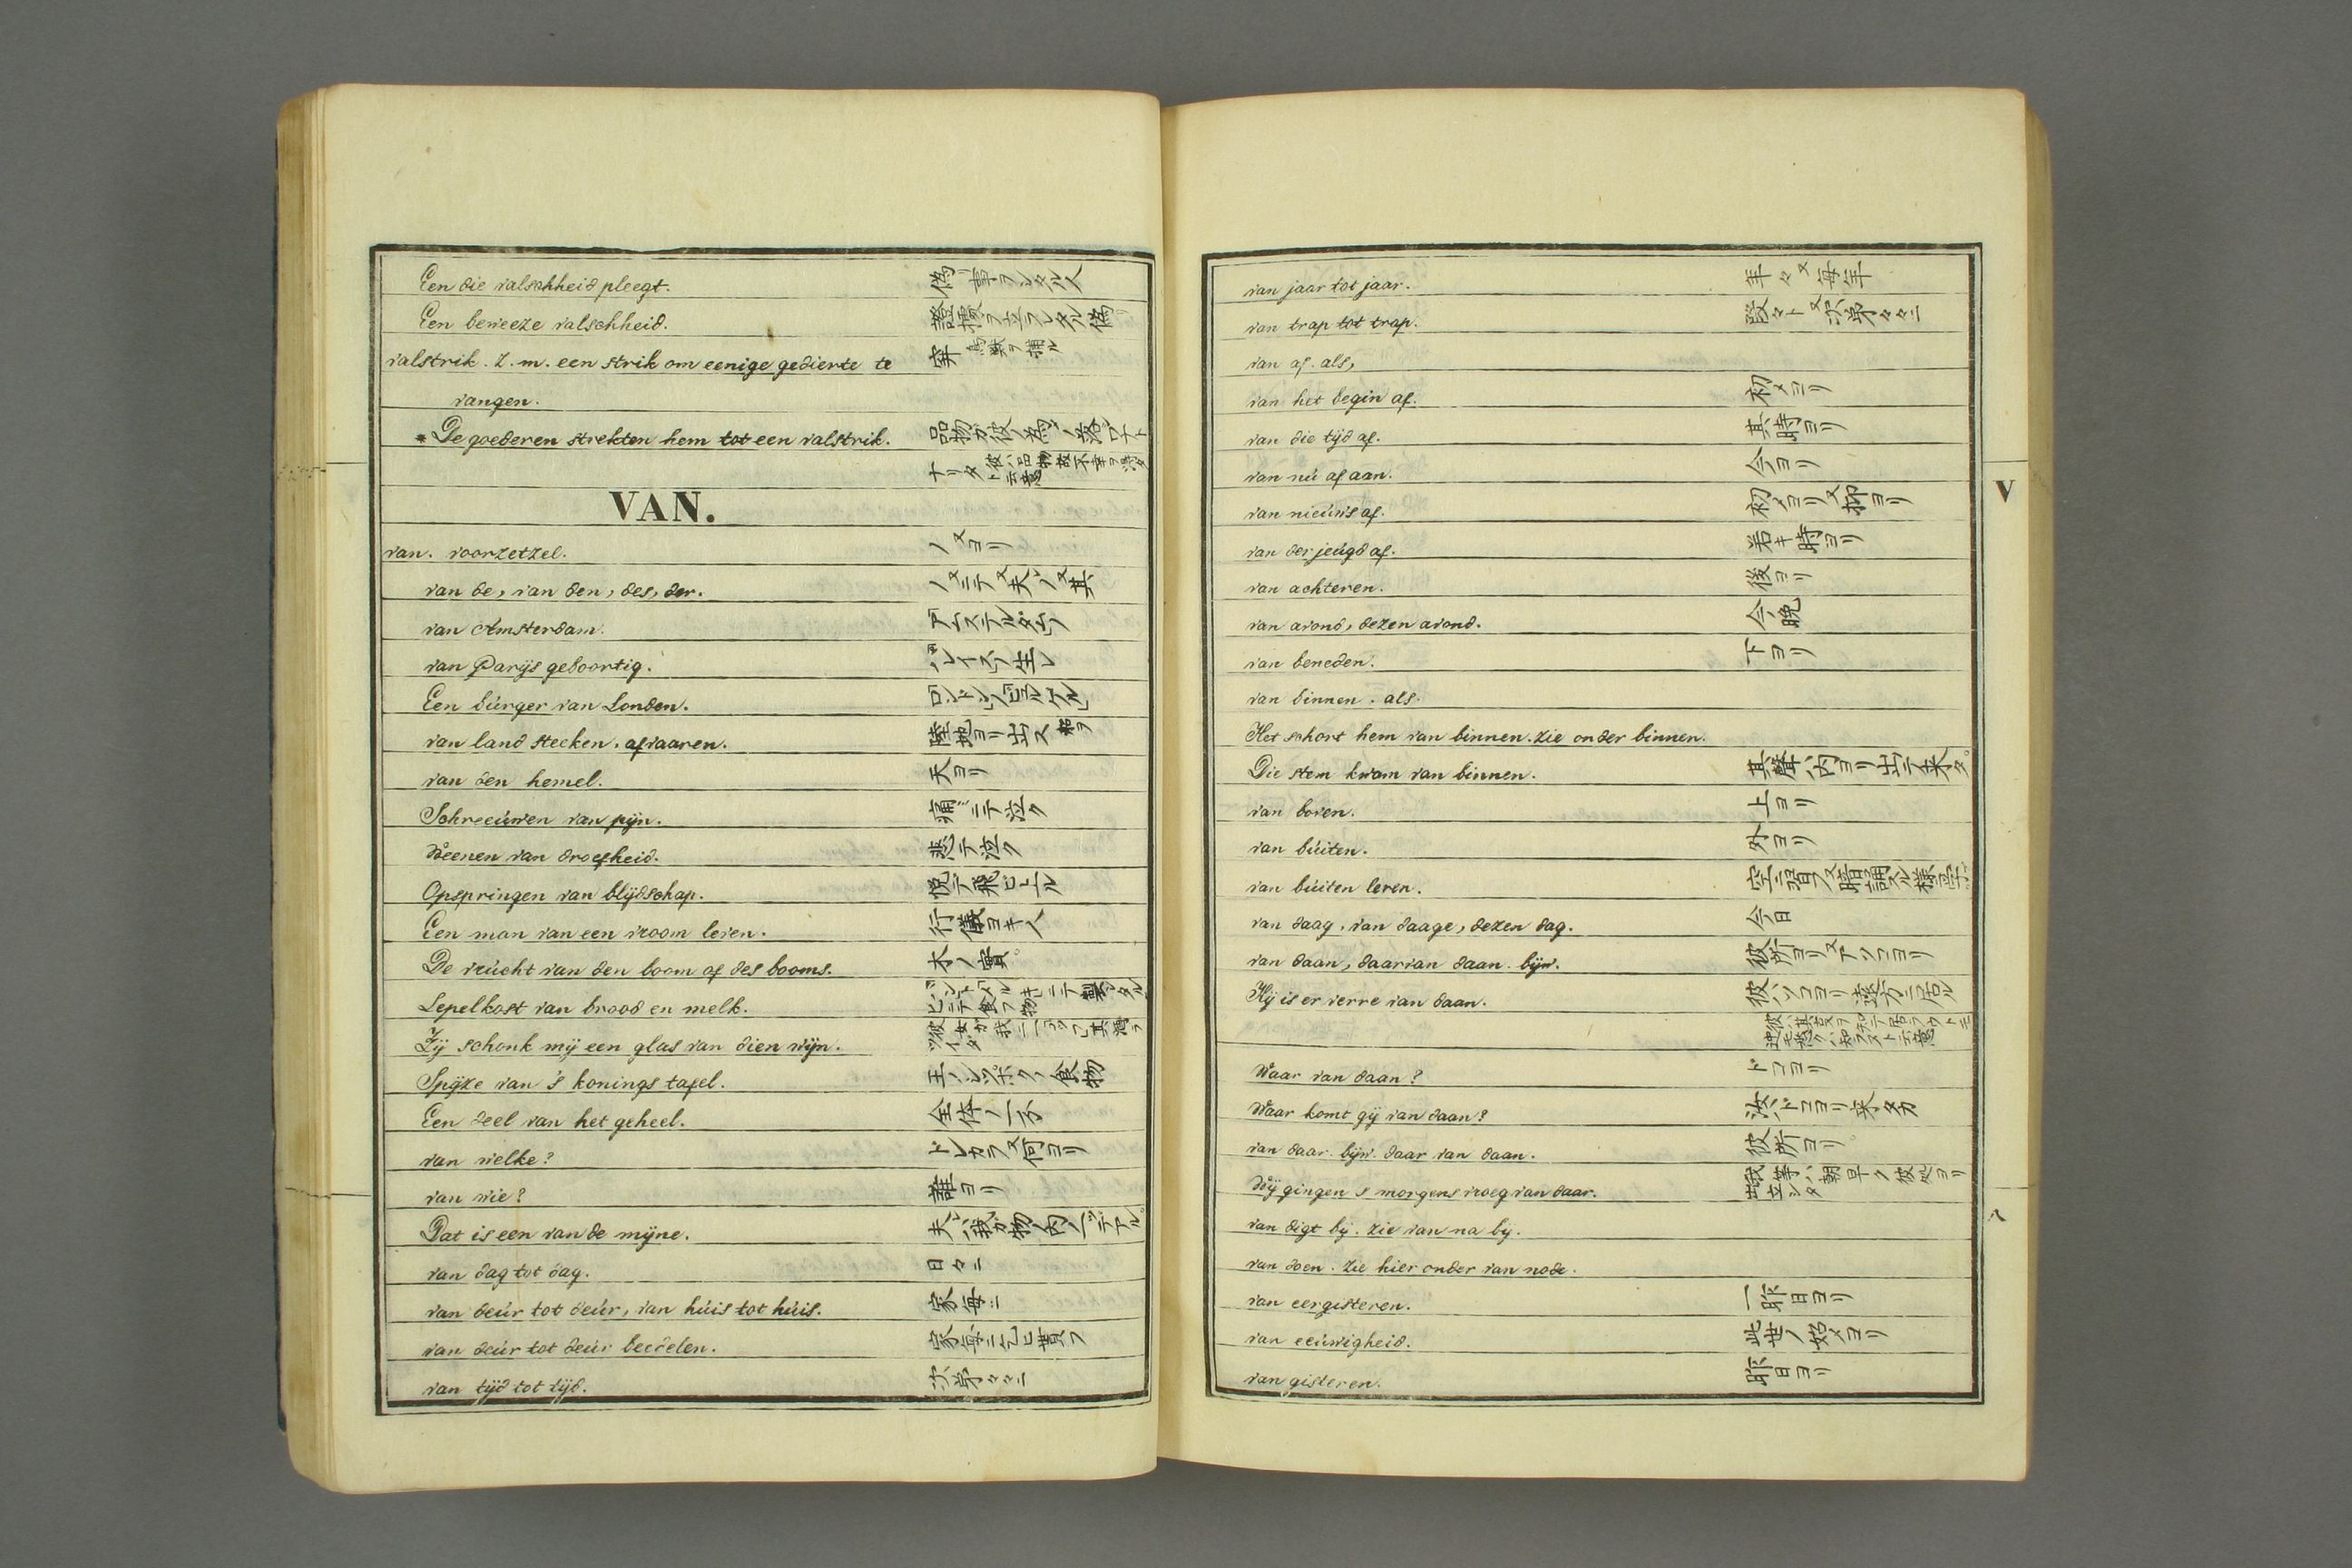 Een die valschheid pleegt. 偽リ事ヲシタル人
Een beweeze valschheid. 證據ヲ立テレタル偽
valstrik. z. m. een strik om eenige gedierte te 穽 鳥獣ヲ捕ル
vangen.
* De goederen strekten hem tot een valstrik. 品物ガ彼ノ為メノ落シアナト
ナリタ 彼ハ品物故不幸ヲ得タト云意
VAN.
van. voorzetzel. ノ又ヨリ
van de, van den, des, der. ノ又ニテ又夫レノ又其
van Amsterdam. アムステルダムノ
van Parijs geboortig. パレイスノ生レ
Een búrger van Londen. ロンドンノビュルゲル
van land steeken. afvaaren. 陸地ヨリ出ス 船ヲ
van den hemel. 天ヨリ
Schreeúwen van pijn. 痛ミテ泣ク
Weenen van droefheid. 悲テ泣ク
Opspringen van blijdschap. 悦テ飛ビ上ル
Een man van een vroom leven. 行儀ヨキ人
De vrúcht van den boom of des booms. 木ノ實
Lepelkost van brood en melk.
Zij schonk mij een glas van dien wijn.
Spijze van 's konings tafel. 王ノシッポクノ食物
Een deel van het geheel. 全体ノ一分
van welke? ドレカラ又何ヨリ
van wie? 誰ヨリ
Dat is een van de mijne. 夫レハ我ガ物ノ内ノ一ツデアル
van dag tot dag. 日々ニ
van deúr tot deúr, van húis tot húis. 家毎ニ
van deúr tot deúr beedelen. 家毎ニ乞ヒ貰フ
van tijd tot tijd. 次第々々ニ
van jaar tot jaar. 年々又毎年
van trap tot trap. 段々ト又次第々々ニ
van af. als,
van het begin af. 初メヨリ
van die tijd af. 其時ヨリ
van nú af aan. 今ヨリ
van nieúws af. 初メヨリ又抑ヨリ
van der jeúgd af. 若キ時ヨリ
van achteren. 後ヨリ
van avond, dezen avond. 今晩
van beneden. 下ヨリ
van binnen. als.
Het schort hem van binnen. zie onder binnen.
Die stem kwam van binnen. 其聲ハ内ヨリ出テ来タ
van boven. 上ヨリ
van búiten. 外ヨリ
van búiten leren.
van daag, van daage, dezen dag. 今日
van daan, daarvan daan. bijw. 彼所ヨリ又アソコヨリ
Hij is er verre van daan. 彼ハソコヨリ遠方ニ居ル
Waar van daan? ドコヨリ
Waar komt gij van daan? 汝ハドコヨリ来タカ
van daar. bijw. daar van daan. 彼所ヨリ
Wij gingen s morgens vroeg van daar. 我等ハ朝早ク彼処ヨリ出立シタ
van digt bij. zie van na bij.
van doen. zie hier onder van node.
van eergisteren. 一昨日ヨリ
van eeúwigheid. 此世ノ始メヨリ
van gisteren. 昨日ヨリ
V